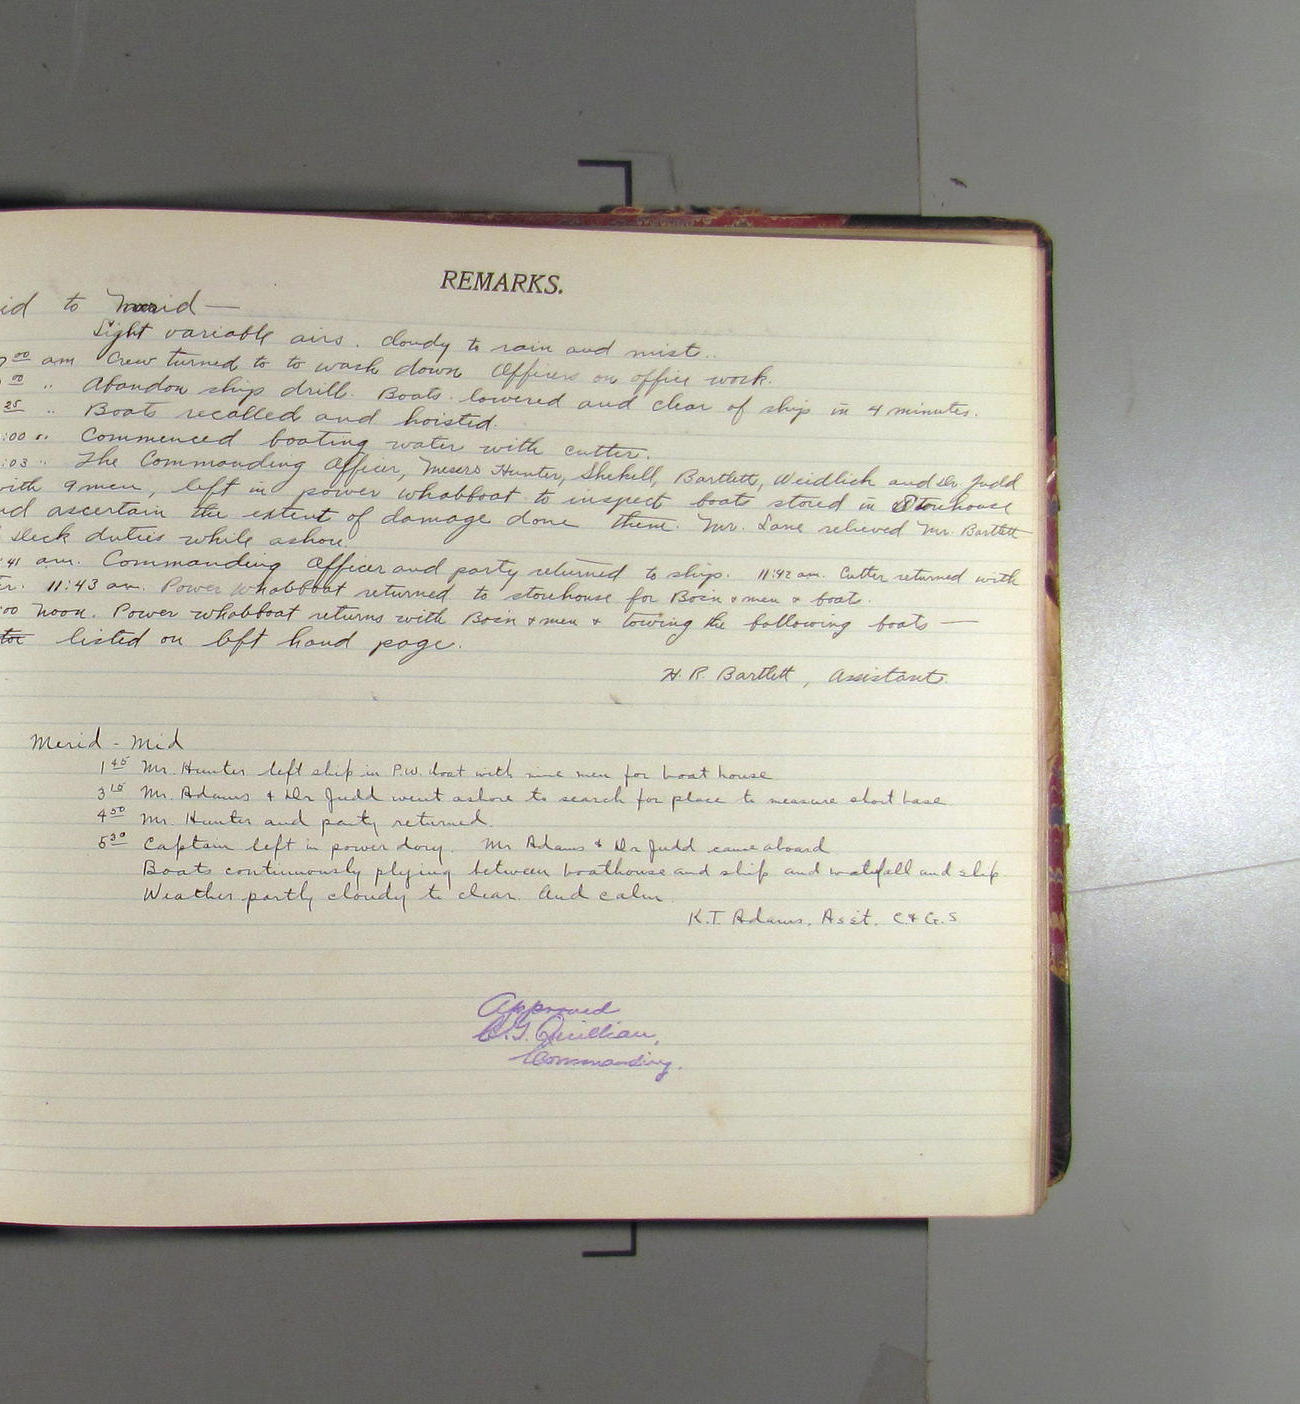 REMARKS.
id to Merid —
Light variable airs. cloudy to rain and mist..
7 00 am Crew turned to to wash down Officers on office work.
00 " Abandon ship drill. Boats lowered and clear of ship in 4 minutes.
25 " Boats recalled and hoisted.
:00 " Commenced boating water with cutter.
:03 " The Commanding Officer, Messrs Hunter, Shekell, Bartlett, Weidlich and Dr Judd
with 9 men, left in power whaleboat to inspect boats stored in Storehouse
nd ascertain the extent of damage done them. Mr. Lane relieved Mr. Bartlett
deck duties while ashore.
:41 am. Commanding Officer and party returned to ship. 11:42 am. Cutter returned with
er. 11:43 am. Power whaleboat returned to storehouse for Bosn & men & boat.
:00 Noon. Power whaleboat returns with Bosn & men & towing the following boats —
listed on left hand page.
H. R. Bartlett, Assistant.
Merid - Mid
1 45 Mr. Hunter left ship in P.W. boat with nine men for boat house
3 15 Mr. Adams & Dr Judd went ashore to search for place to measure short base
4 50 Mr. Hunter and party returned.
5 30 Captain left in power dory. Mr Adams & Dr Judd came aboard
Boats continuously plying between boathouse and ship and waterfall and ship.
Weather partly cloudy to clear. And calm.
K.T. Adams, Asst. C. & G. S
Approved
C. G. Quillian,
Commanding.